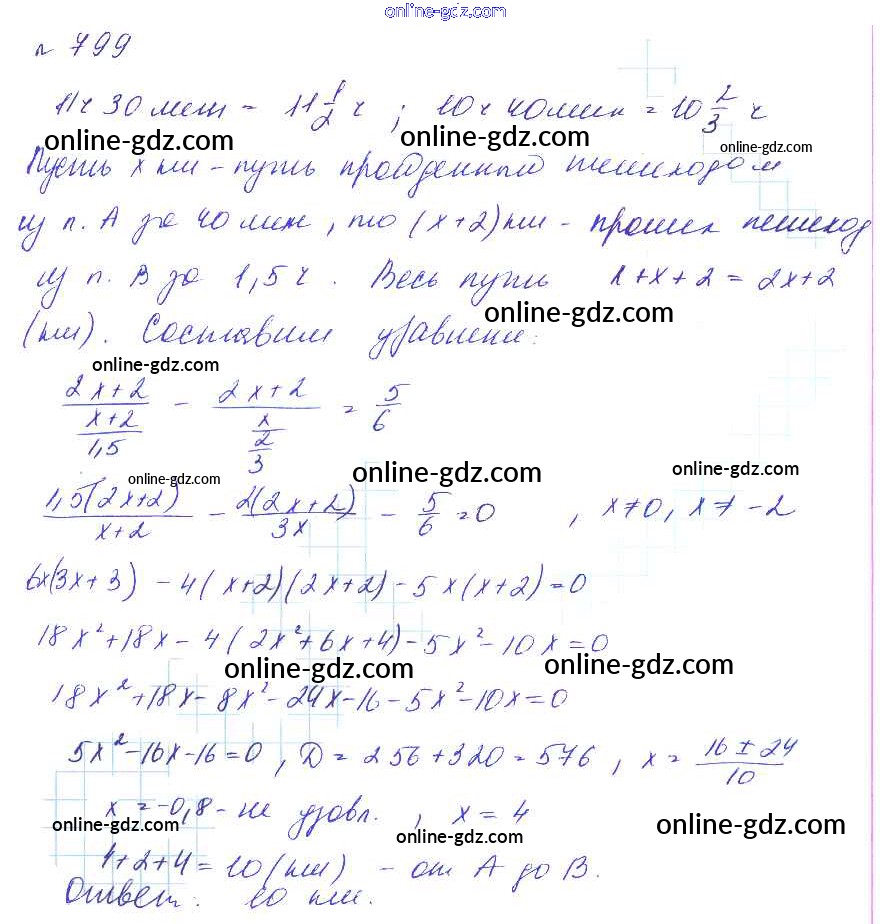 online-gdz.com
№ 799
11ч 30 мин = 11 1/2 ч ; 10ч 40мин = 10 2/3 ч
online-gdz.com online-gdz.com online-gdz.com
Пусть x км – путь пройденный пешеходом
из п. А за 40 мин, то (x+2)км – прошел пешеход
из п. В за 1,5 ч. Весь путь x+x+2 = 2x+2
online-gdz.com
(км). Составим уравнение:
online-gdz.com
(2x+2)/((x+2)/1,5) – (2x+2)/(x/(2/3)) = 5/6
online-gdz.com online-gdz.com online-gdz.com
1,5(2x+2)/(x+2) – 2(2x+2)/3x – 5/6 = 0 , x≠0, x≠ -2
6x(3x+3) – 4(x+2)(2x+2) – 5x(x+2) = 0
18x²+18x – 4(2x²+6x+4) – 5x² – 10x = 0
online-gdz.com online-gdz.com
18x²+18x – 8x² – 24x – 16 – 5x² – 10x = 0
5x² – 16x – 16 = 0 , D = 256+320 = 576 , x = (16 ± 24)/10
x = -0,8 – не удовл. , x = 4
online-gdz.com online-gdz.com online-gdz.com
4+2+4 = 10 (км) – от А до В.
Ответ: 10 км.